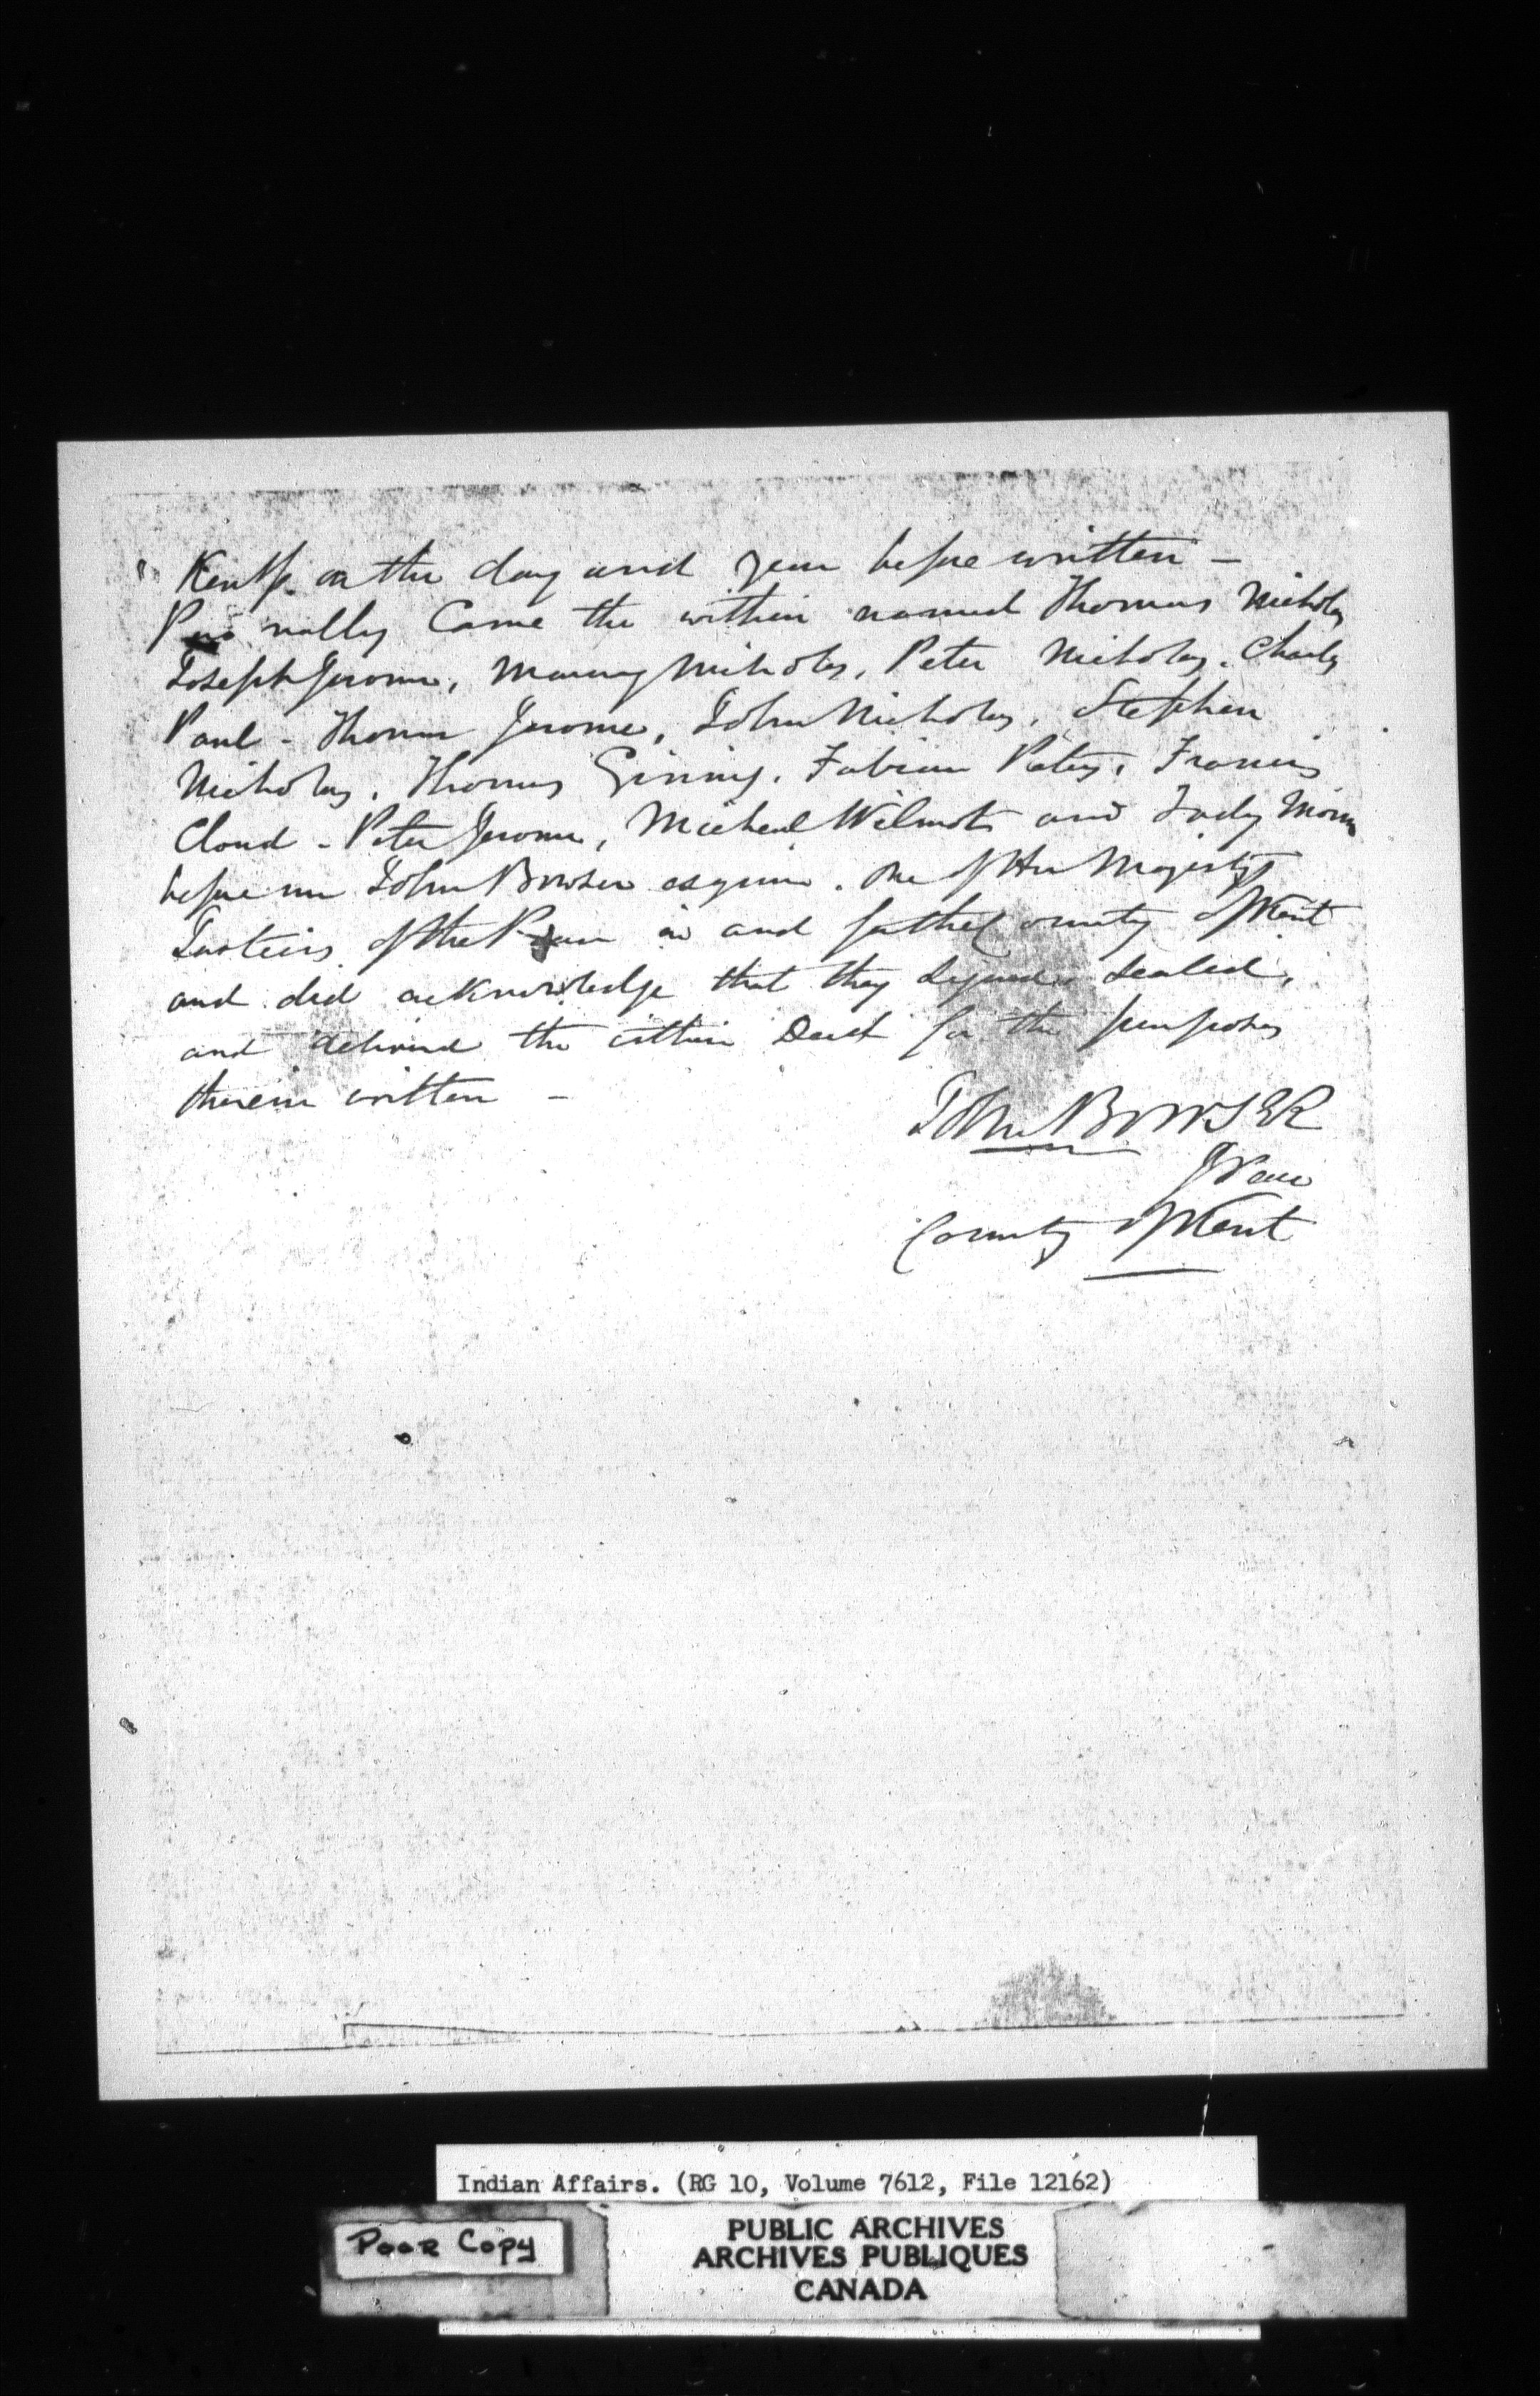 Kent ss. on the day and year before written –
Personally Came the within named Thomas Nicholas
Joseph Jerome, Nicholas, Peter Nicholas. Charles
Paul – Thomas Jerome, John Nicholas, Stephen
Nicholas, Thomas Ginnis, Fabian Peters, Francis
Cloud – Peter Jerome, Micheal Wilmot and
before me John Bowser esquire. one of Her Majestys
Justices of the Peace in and for the County of Kent
and did acknowledge that they signed sealed,
and delivered the within Deed for the purposes
therein written –
John BOWSER
J Peace
County of Kent
Indian Affairs. (RG 10, Volume 7612, File 12162)
POOR COPY
PUBLIC ARCHIVES
ARCHIVES PUBLIQUES
CANADA